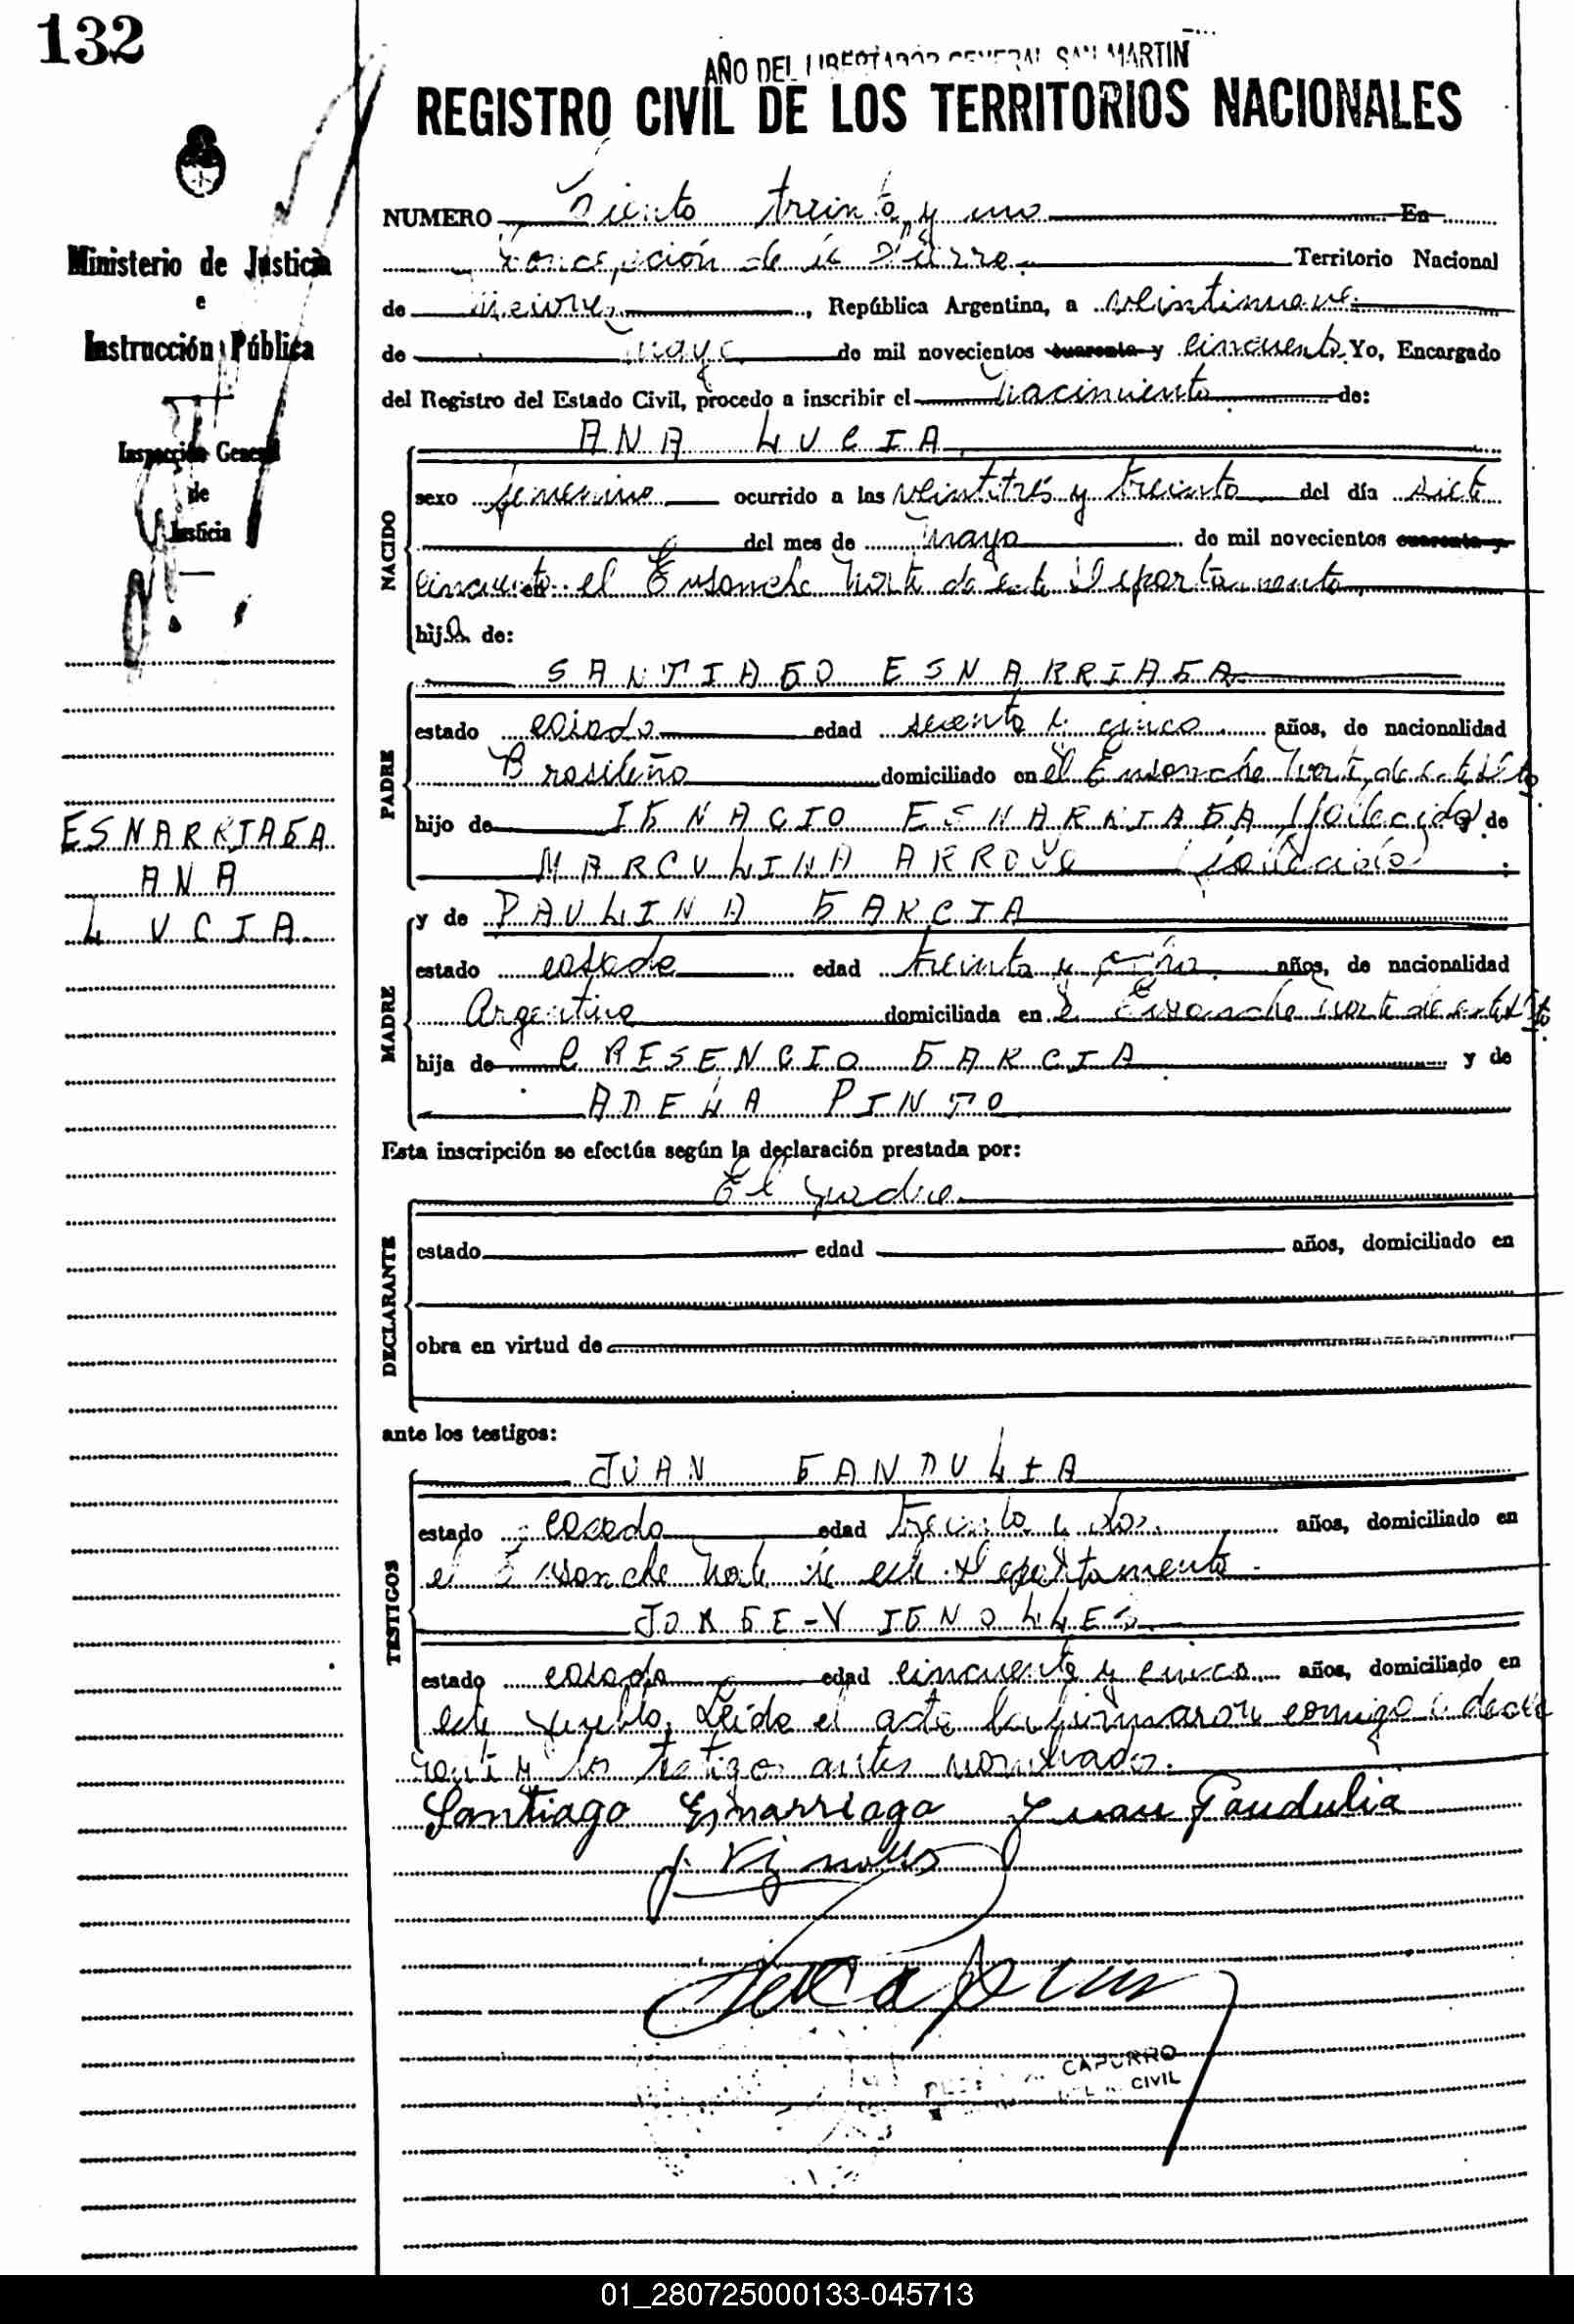 132
AÑO DEL LIBERTADOR GENERAL SAN MARTIN
REGISTRO CIVIL DE LOS TERRITORIOS NACIONALES
Ministerio de Justicia
e
Instrucción Pública
Inspección General
de
Justicia
ESNARRIAGA
ANA
LUCIA
NUMERO Ciento treinta y uno En
Concepción de la Sierra Territorio Nacional
de Misiones, República Argentina, a veintinueve
de mayo de mil novecientos cuarenta y cincuenta Yo, Encargado
del Registro del Estado Civil, procedo a inscribir el Nacimiento de:
NACIDO
ANA LUCIA
sexo femenino ocurrido a las veintitrés y treinta del día siete
del mes de mayo de mil novecientos cuarenta y
cincuenta en el Ensanche Norte de este Departamento
hija de:
PADRE
SANTIAGO ESNARRIAGA
estado casado edad sesenta y cinco años, de nacionalidad
Brasileña domiciliado en el Ensanche Norte de este Dto
hijo de IGNACIO ESNARRIAGA (fallecido) y de
MARCULINA ARROYO (fallecida) ;
MADRE
y de PAULINA GARCIA
estado casada edad treinta y años, de nacionalidad
Argentina domiciliada en el Ensanche Norte de este Dto
hija de CRESENCIO GARCIA y de
ADELA PINTO
Esta inscripción se efectúa según la declaración prestada por:
DECLARANTE
El padre
estado edad años, domiciliado en
obra en virtud de
ante los testigos:
TESTIGOS
JUAN GANDULIA
estado casado edad treinta y dos años, domiciliado en
el Ensanche Norte de este Departamento
JORGE VIGNOLLES
estado casado edad cincuenta y cinco años, domiciliado en
este pueblo. Leída el acta la firmaron conmigo el decla
rante y los testigos antes nombrados.
Santiago Esnarriaga Juan Gandulia
J. Vignolles
CAPURRO
CIVIL
01_280725000133-045713